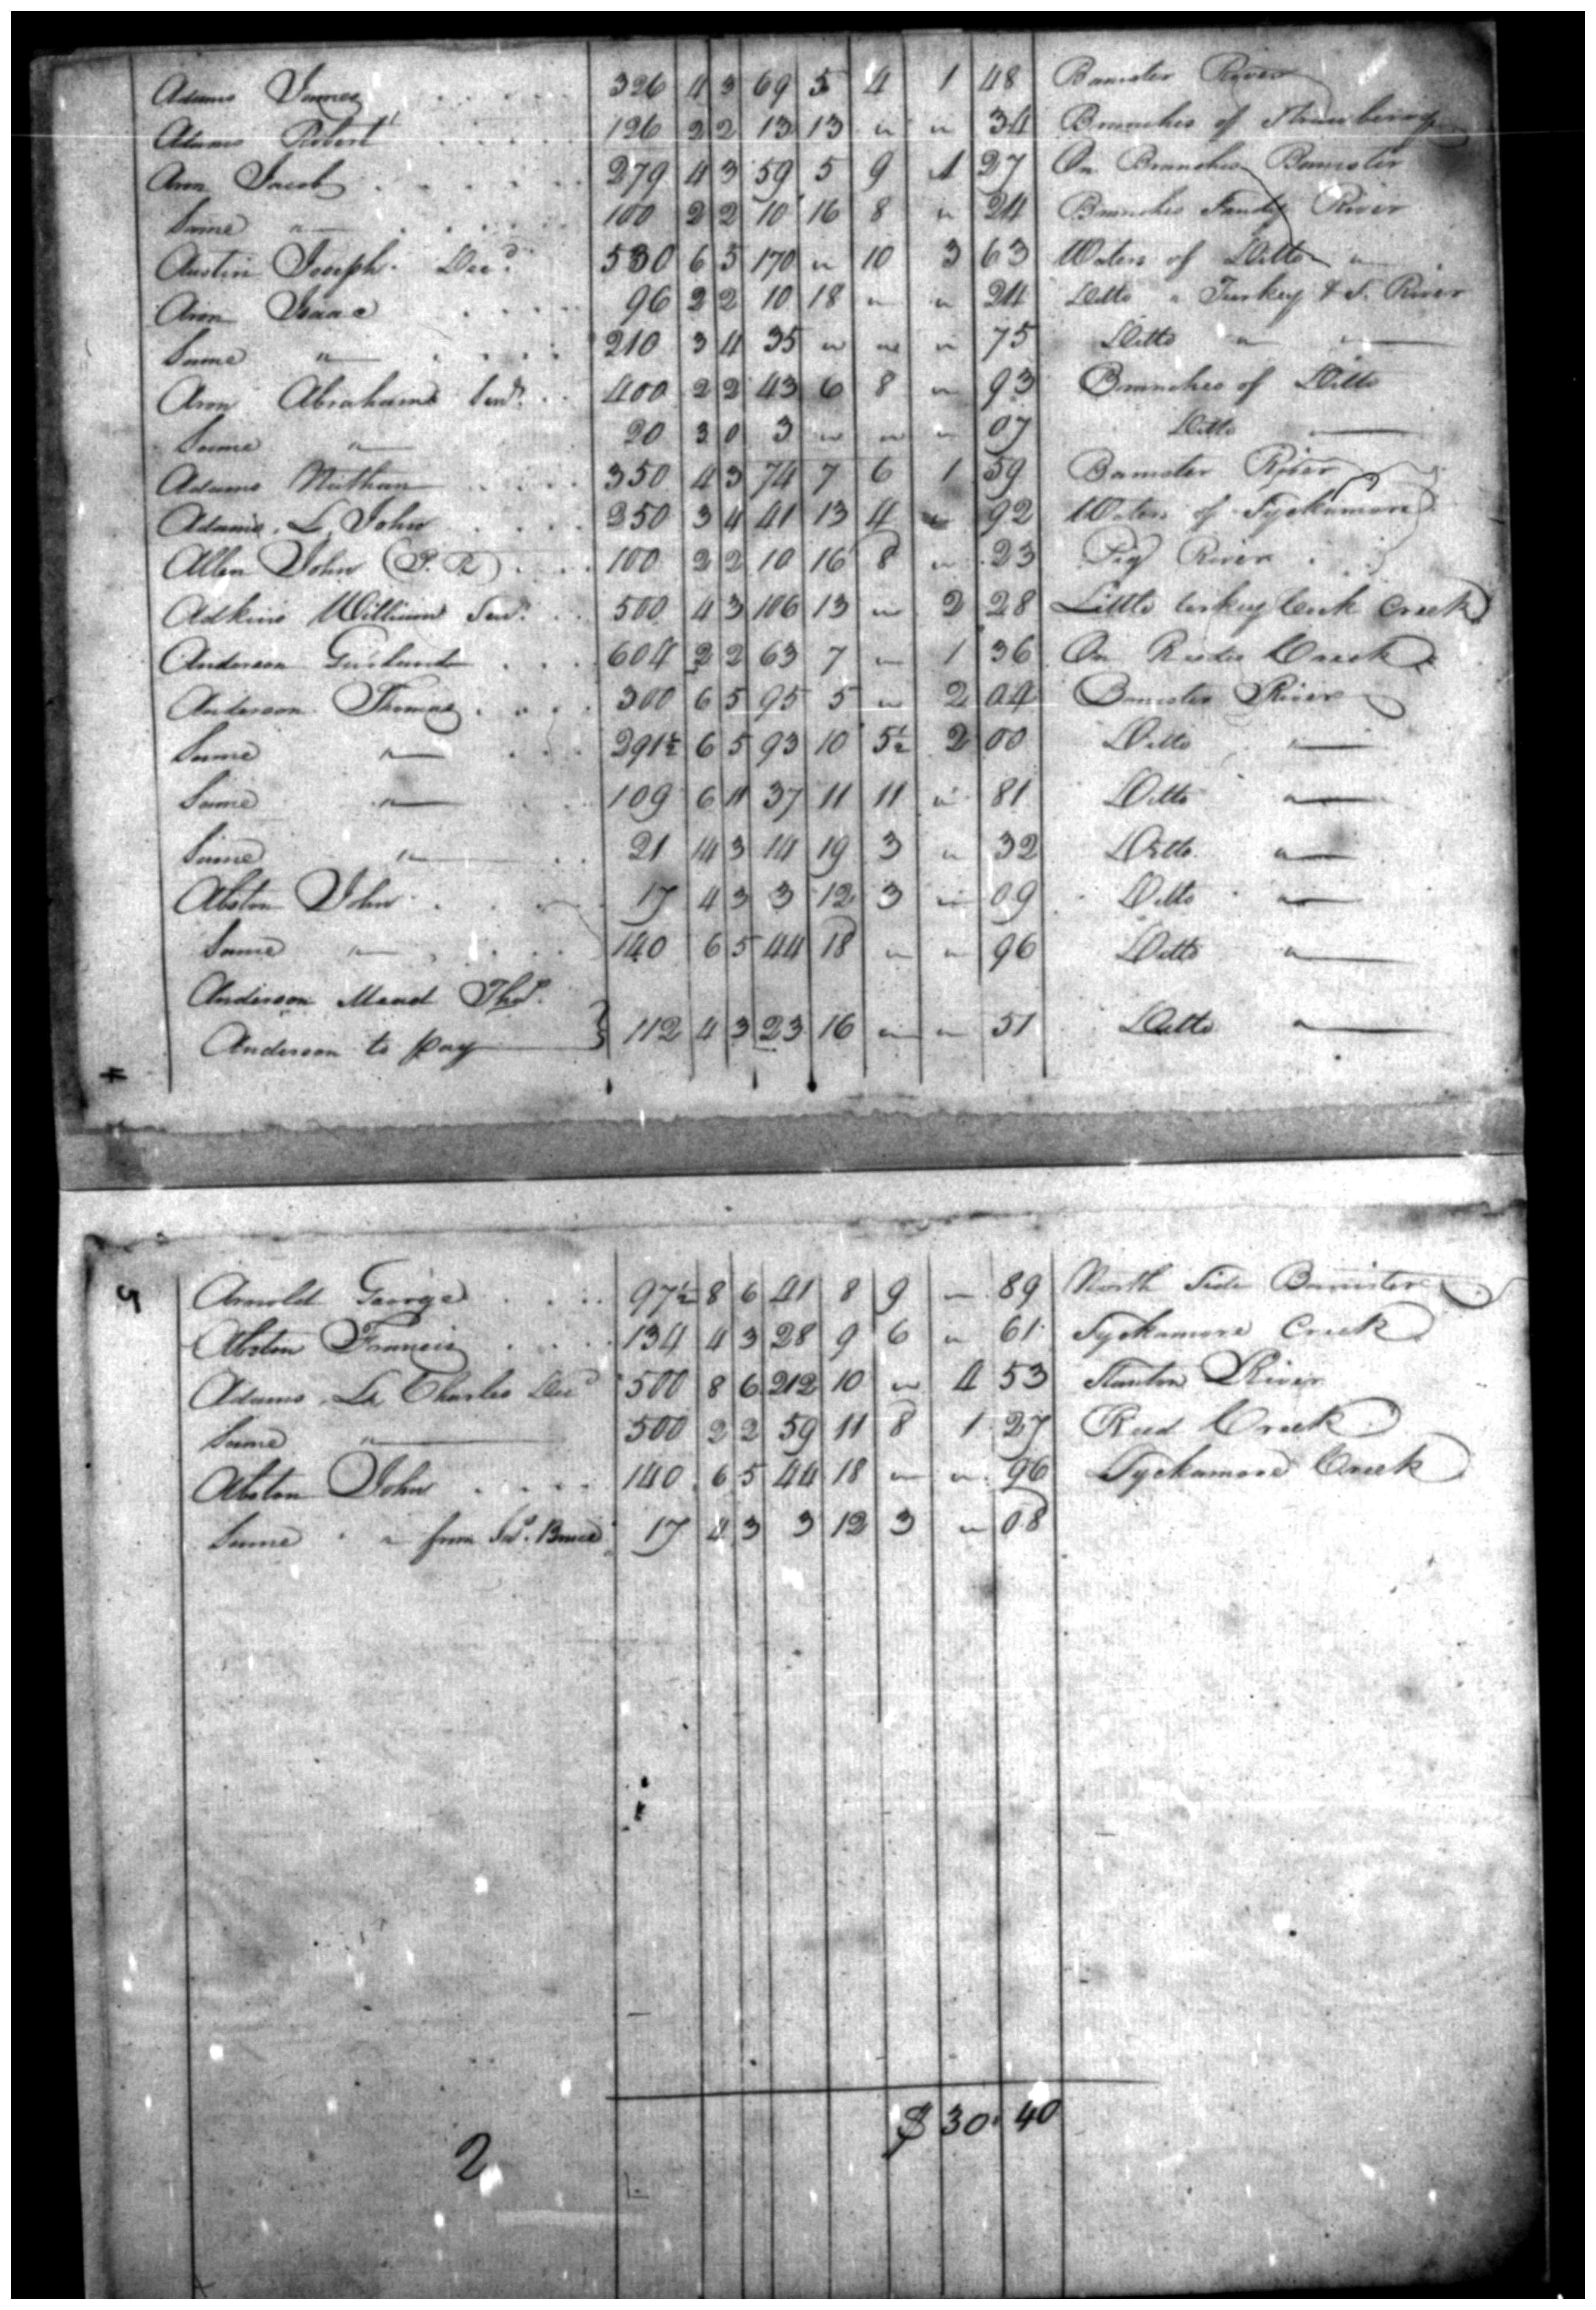 Adams James 326 4 3 69 5 4 1 48 Banister River
Adams Robert 126 2 2 13 13 " " 34 Branches of Strawberry
Aron Jacob 279 4 3 59 5 9 1 27 On Branches Banister
Same " 100 2 2 10 16 8 " 24 Branches Sandy River
Austin Joseph Decd. 530 6 5 170 " 10 3 63 Waters of Ditto "
Aron Isaac 96 2 2 10 18 " " 24 Ditto " Turkey & S. River
Same " 210 3 4 35 " " " 75 Ditto " "
Aron Abraham Senr. 400 2 2 43 6 8 " 93 Branches of Ditto
Same " 20 3 0 3 " " " 07 Ditto
Adams Nathan 350 4 3 74 7 6 1 59 Banister River
Adams, L John 250 3 4 41 13 4 " 92 Waters of Syckamore
Allen John (P. R) 100 2 2 10 16 8 " 23 Pig River
Adkins William Senr. 500 4 3 106 13 " 2 28 Little Creek
Anderson Garland 604 2 2 63 7 " 1 36 On Creek
Anderson Thomas 300 6 5 95 5 " 2 04 Banister River
Same " 291½ 6 5 93 10 5½ 2 00 Ditto "
Same " 109 6 11 37 11 11 " 81 Ditto "
Same " 21 14 3 14 19 3 " 32 Ditto "
Abston John 17 4 3 3 12 3 " 09 Ditto "
Same " 140 6 5 44 18 " " 96 Ditto "
Anderson Mead Thos.
Anderson to pay } 112 4 3 23 16 " " 51 Ditto "
5
Arnold George 97½ 8 6 41 8 9 " 89 North Side Banister
Abston Francis 134 4 3 28 9 6 " 61 Syckamore Creek
Adams, Ln Charles Decd 500 8 6 212 10 " 4 53 Stanton River
Same " 500 2 2 59 11 8 1 27 Reed Creek
Abston John 140 6 5 44 18 " " 96 Syckamore Creek
Same " " from Jno. Bruce 17 4 3 3 12 3 " 08
$ 30. 40
2